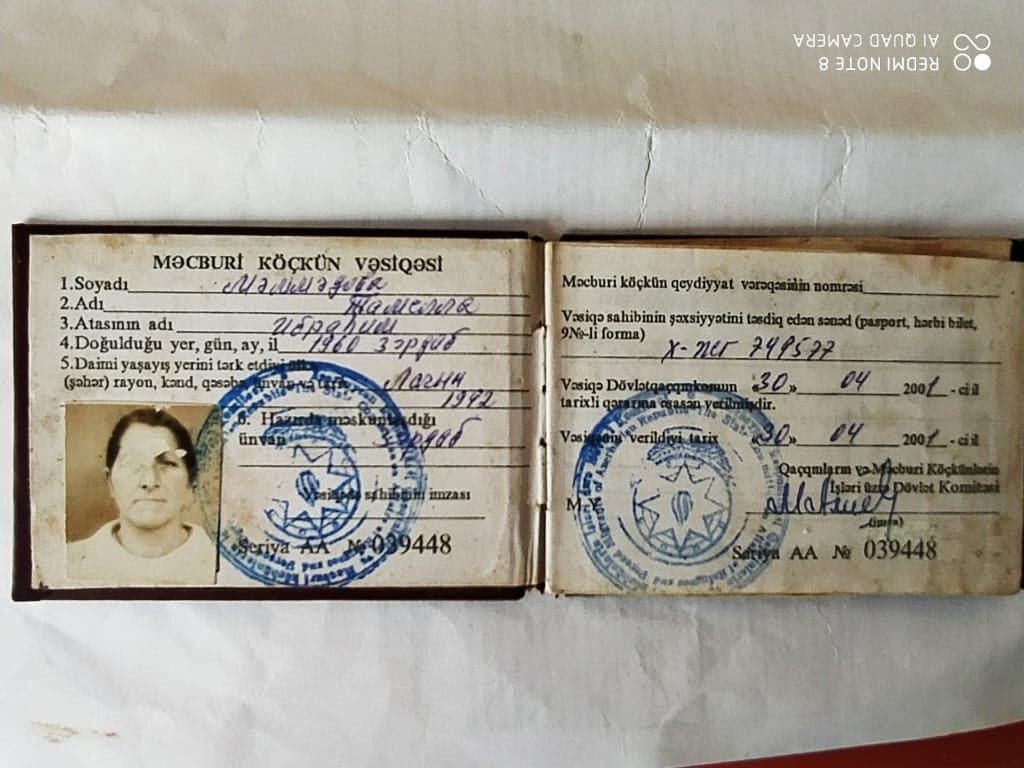 MƏCBURİ KÖÇKÜN VƏSİQƏSİ
1.Soyadı Мәммәдова
2.Adı Жамелла
3.Atasının adı Ибраһим
4.Doğulduğu yer, gün, ay, il 1960 Зәрдаб
5.Daimi yaşayış yerini tərk etdiyi
(şəhər) rayon, kənd, qəsəbə, ünvan və tarix Лачын
1992
6. Hazırda məskunlaşdığı
ünvan Зәрдаб
Vəsiqədə sahibinin imzası
Seriya AA № 039448
Məcburi köçkün qeydiyyat vərəqəsinin nomrəsi
Vəsiqə sahibinin şəxsiyyətini təsdiq edən sənəd (pasport, hərbi bilet,
9№-li forma)
749577
Vəsiqə Dövlətqaçqınkomun «30» 04 2001 - ci il
tarixli qərarına əsasən verilmişdir.
Vəsiqənin verildiyi tarix «30» 04 2001 - ci il
Qaçqınların və Məcburi Köçkünlərin
İşləri üzrə Dövlət Komitəsi
M.Y.
(imza)
Seriya AA № 039448
REDMI NOTE 8
AI QUAD CAMERA